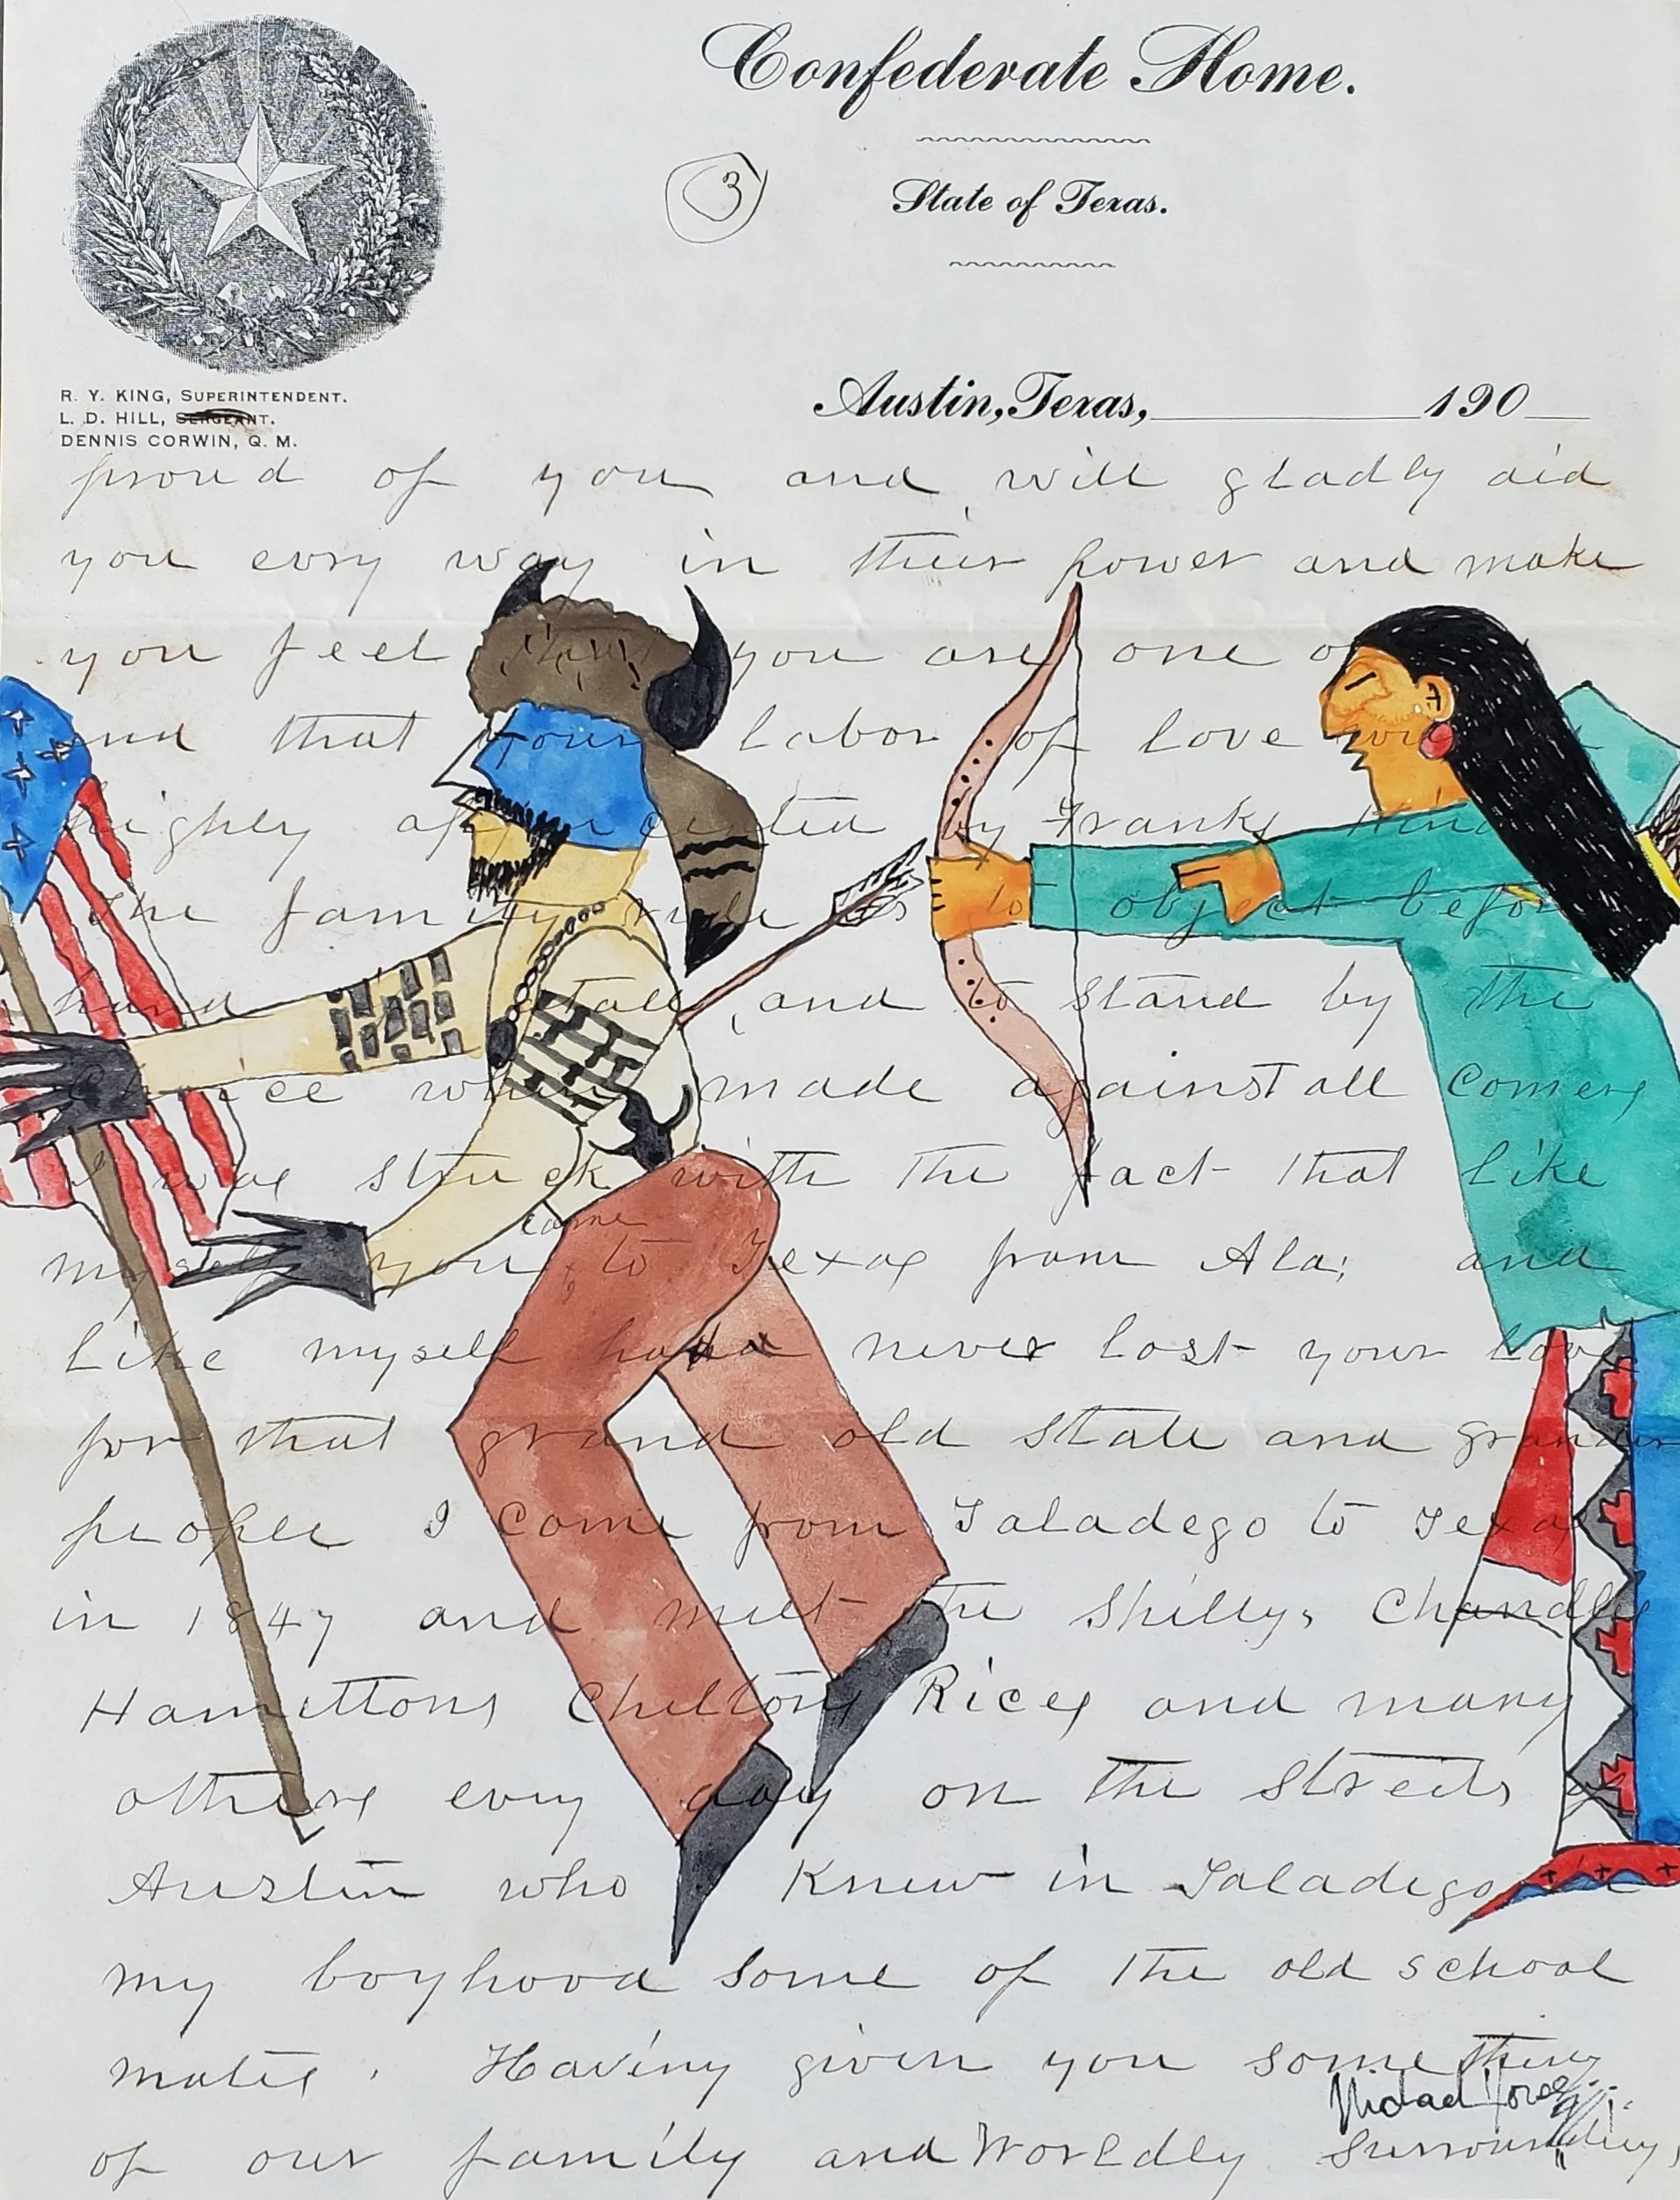 Confederate Home.
3
State of Texas.
R. Y. KING, SUPERINTENDENT.
L. D. HILL, SERGEANT.
DENNIS CORWIN, Q. M.
Austin, Texas, 190
proud of you and will gladly aid
you evry way in their power and make
you feel you are one of
and that your labor of love
highly appreciated by Franks kind
The family rule is to object before
hand and to stand by the
choice when made against all comers
I was struck with the fact that like
came
myself you to Texas from Ala; and
like myself have never lost your love
for that grand old State and grander
people I come from Taladego to Texas
in 1847 and meet the Shillys Chandlers
Hamittons Chiltons Rices and many
others evry day on the streets of
Austin who Knew in Taladego in
my boyhood some of the old school
mates. Having given you something
Michael Horse
of our family and Worldly surroundings